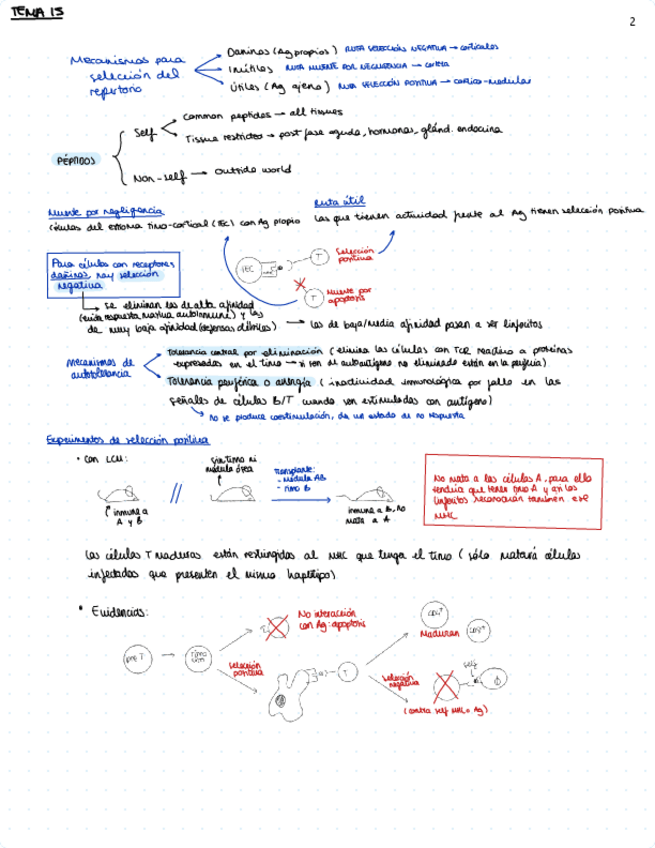 TEMA 15
2
Mecanismos para selección del repertorio
Dañinos (Ag propios) RUTA SELECCIÓN NEGATIVA → corticales
Inútiles RUTA MUERTE POR NEGLIGENCIA → corteza
Útiles (Ag ajeno) RUTA SELECCIÓN POSITIVA → cortico-medular
PÉPTIDOS
Self
Common peptides → all tissues
Tissue restricted → post fase aguda, hormonas, gland. endocrina
Non-self → outside world
Muerte por negligencia
células del estroma timo-cortical (TEC) con Ag propio
Ruta útil
Las que tienen actividad frente al Ag tienen selección positiva
Para células con receptores dañinos, hay selección negativa
TEC
T
Selección positiva
T
Muerte por apoptosis
se eliminan las de alta afinidad
(evita respuesta masiva, autoinmune) y las
de muy baja afinidad (defensas débiles) → las de baja/media afinidad pasan a ser linfocitos
Mecanismos de autotolerancia
Tolerancia central por eliminación (elimina las células con TCR reactivo a proteínas
expresadas en el timo → si son de autoantígeno no eliminado están en la periferia)
Tolerancia periférica o anergia (inactividad inmunológica por fallo en las
señales de células B/T cuando son estimuladas con antígeno)
no se produce coestimulación, da un estado de no respuesta
Experimentos de selección positiva
• Con LCM:
inmune a A y B
//
sin timo ni médula ósea
Transplante:
- médula AB
- timo B
inmune a B, no mata a A
No mata a las células A, para ello
tendría que tener timo A y así los
linfocitos reconozcan también ese
MHC
Las células T maduras están restringidas al MHC que tenga el timo (sólo matará células
infectadas que presenten el mismo haplotipo)
• Evidencias:
pre T
No interacción con Ag: apoptosis
selección positiva
T
CD4+
Maduran
CD8+
selección negativa
self
(contra self MHC o Ag)